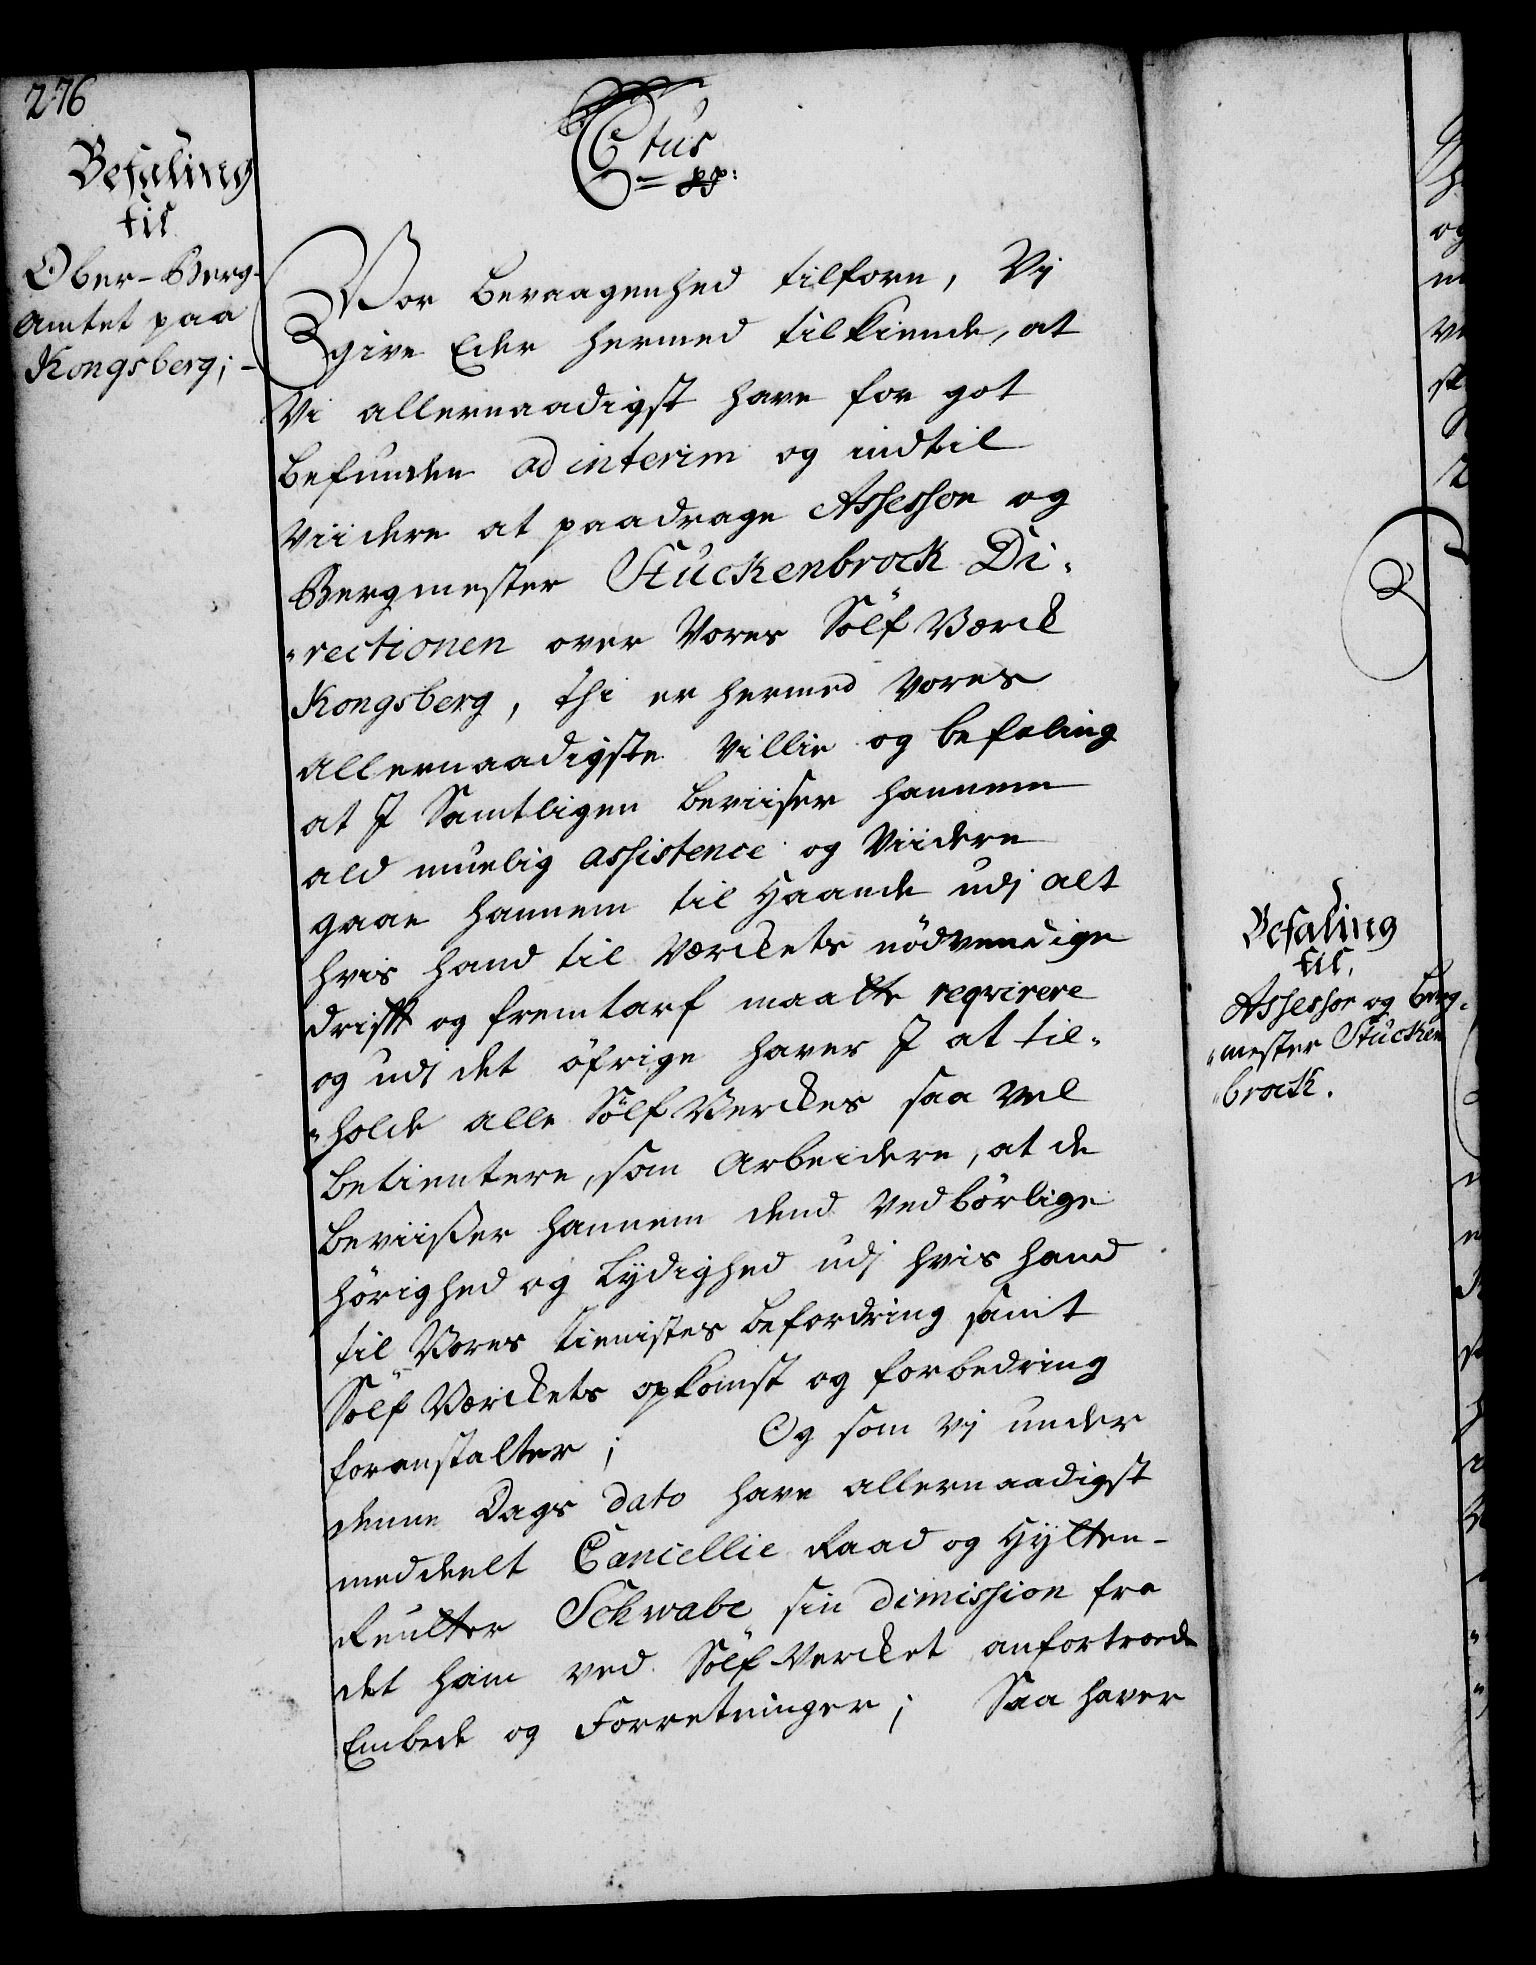 276
Befaling
til
Ober-Berg-
Amtet paa
Kongsberg;-
Ctus
pp:
Vor bevaagenhed tilforn, Vi
give Eder hermed tilkiende, at
Vi allernaadigst have for got
befunden ad interim og indtil
Viidere at paadrage Assessor og
Bergmester Stuckenbrock Di-
"rectionen over Vores Sölf Værck
Kongsberg, thi er hermed Vores
allernaadigste Villie og befaling
at I Samtligen beviiser hannem
ald muelig assistence og Viidere
gaae hannem til Haande udj alt
hvis hand til Værckets nödvendige
drifft og fremtarf maatte reqvirere
og udj det öfrige haver I at til-
"holde alle Sölf Verckes saa vel
betientere, som Arbeidere, at de
beviißer hannem dend Vedbörlige
hörighed og Lÿdighed udj hvis hand
til Vores tienistes befordring samt
Sölf Værckets opkomst og forbedring
foranstalter; Og som Vj under
denne Dags dato have allernaadigst
meddeelt Cancellie Raad og Hÿtten-
Reulter Schwabe sin dimission fra
det ham ved Sölf-Vercket anfortroede
Embede og Forretninger; Saa haver
Befaling
til.
Assessor og Berg-
"mester Stucken
"brock.